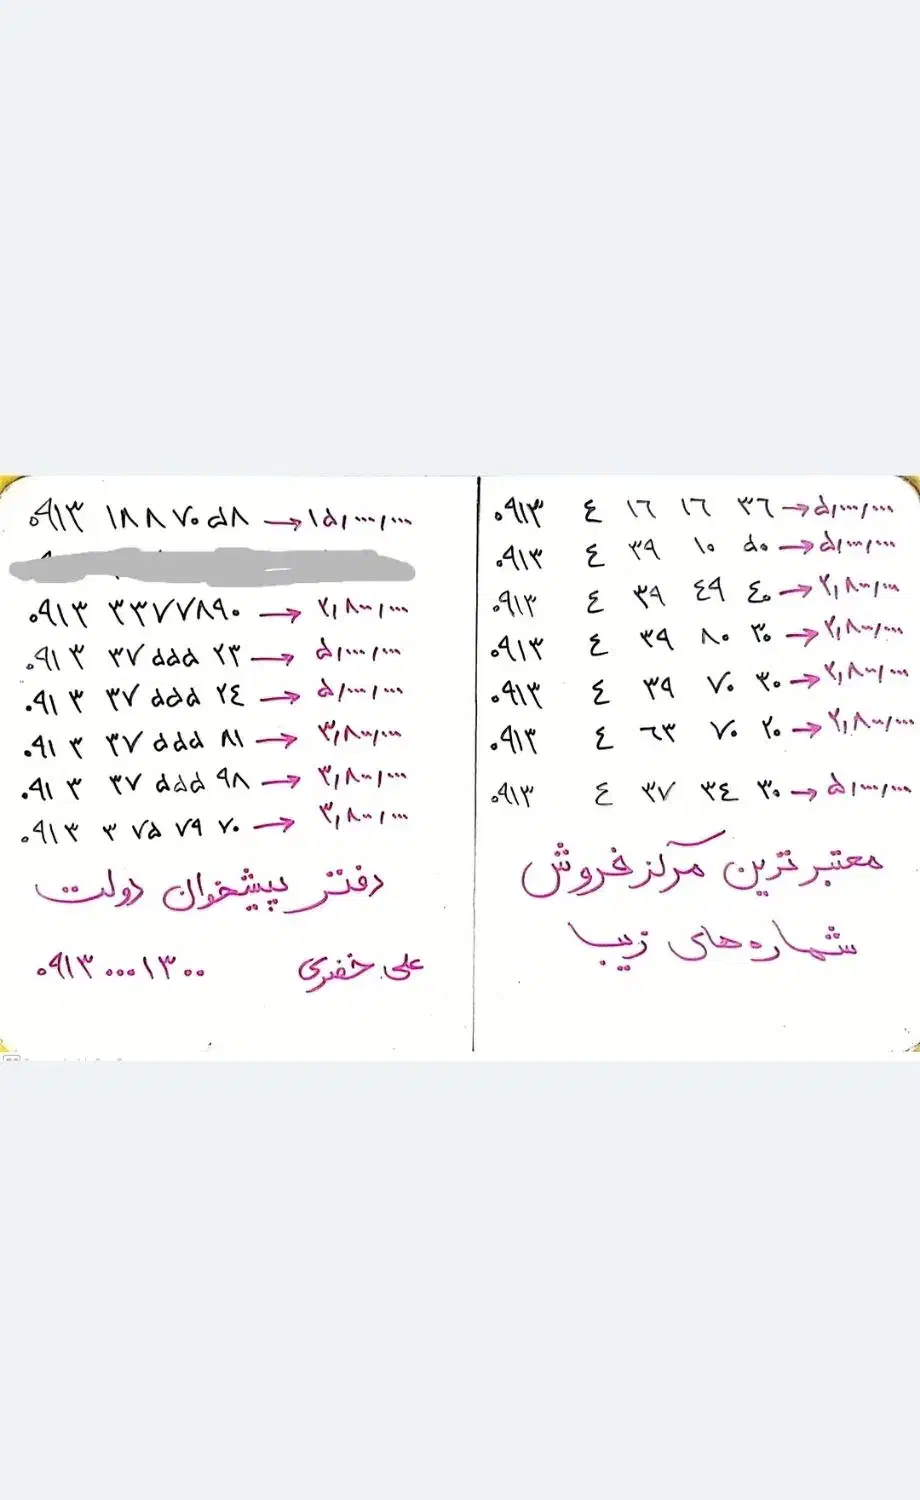 ۰۹۱۳ ٤ ۱۶ ۱۶ ۳۶ → ۵/۰۰۰/۰۰۰
۰۹۱۳ ٤ ۳۹ ۱۰ ۵۰ → ۵/۰۰۰/۰۰۰
۰۹۱۳ ٤ ۳۹ ٤۹ ٤۰ → ۲,۸۰۰/۰۰۰
۰۹۱۳ ٤ ۳۹ ۸۰ ۳۰ → ۲,۸۰۰/۰۰۰
۰۹۱۳ ٤ ۳۹ ۷۰ ۳۰ → ۲,۸۰۰/۰۰۰
۰۹۱۳ ٤ ۶۳ ۷۰ ۲۰ → ۲,۸۰۰/۰۰۰
۰۹۱۳ ٤ ۳۷ ۳٤ ۳۰ → ۵/۰۰۰/۰۰۰
معتبرترین مرکز فروش
شماره های زیبا
۰۹۱۳ ۱۸۸ ۷۰ ۵۸ → ۱۵/۰۰۰/۰۰۰
۰۹۱۳ ۳۳۷۷۸۹۰ → ۳,۸۰۰/۰۰۰
۰۹۱۳ ۳۷ ۵۵۵ ۲۳ → ۵/۰۰۰/۰۰۰
۰۹۱۳ ۳۷ ۵۵۵ ۲٤ → ۵/۰۰۰/۰۰۰
۰۹۱۳ ۳۷ ۵۵۵ ۸۱ → ۳,۸۰۰/۰۰۰
۰۹۱۳ ۳۷ ۵۵۵ ۹۸ → ۳,۸۰۰/۰۰۰
۰۹۱۳ ۳ ۷۵ ۷۹ ۷۰ → ۳,۸۰۰/۰۰۰
دفتر پیشخوان دولت
علی خضری ۰۹۱۳ ۰۰۰ ۱۳۰۰